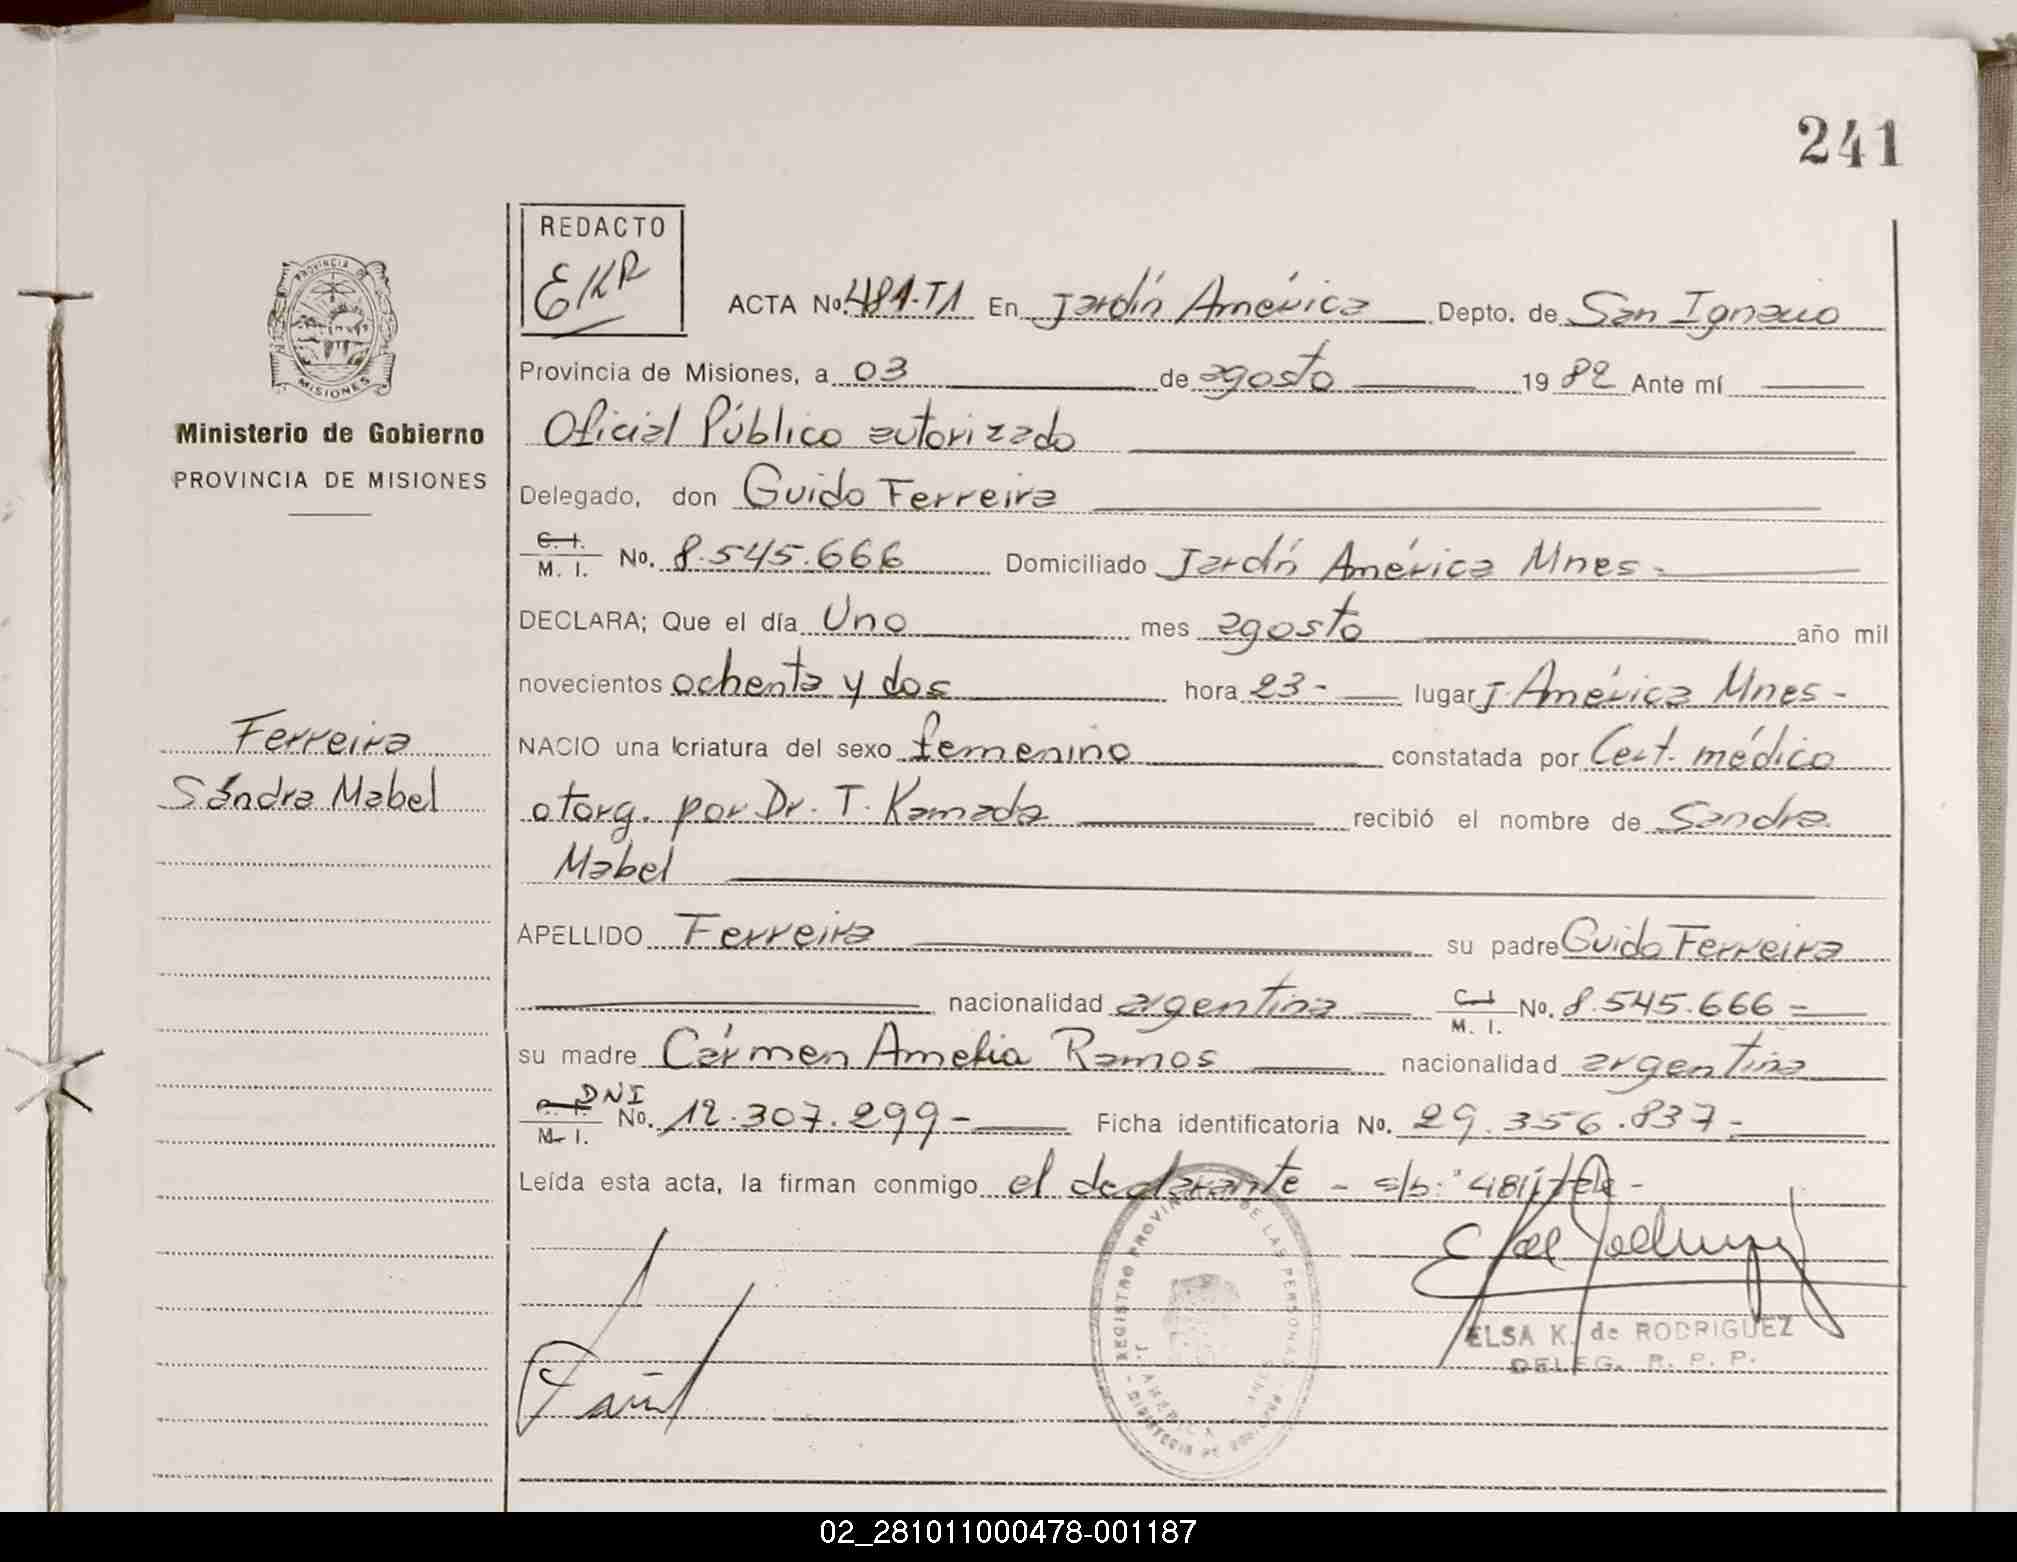 241
REDACTO
EKR
ACTA No. 481-T1 En Jardín América Depto. de San Ignacio
Provincia de Misiones, a 03 de agosto 1982 Ante mí
Oficial Público autorizado
Delegado, don Guido Ferreira
C. I. M. I. No. 8.545.666 Domiciliado Jardín América Mnes-
DECLARA; Que el día Uno mes agosto año mil
novecientos ochenta y dos hora 23- lugar J. América Mnes-
NACIO una criatura del sexo femenino constatada por Cert. médico
otorg. por Dr. T. Kamada recibió el nombre de Sandra
Mabel
APELLIDO Ferreira su padre Guido Ferreira
nacionalidad argentina C. I. M. I. No. 8.545.666=
su madre Cármen Amelia Ramos nacionalidad argentina
DNI
C. I. M. I. No. 12.307.299- Ficha identificatoria No. 29.356.837-
Leída esta acta, la firman conmigo el declarante - s/b: "481
ELSA K. de RODRIGUEZ
DELEG. R. P. P.
REGISTRO PROVINCIAL DE LAS PERSONAS
J. AMERICA
MINISTERIO DE GOBIERNO
PROVINCIA DE
MISIONES
Ministerio de Gobierno
PROVINCIA DE MISIONES
Ferreira
Sándra Mabel
02_281011000478-001187